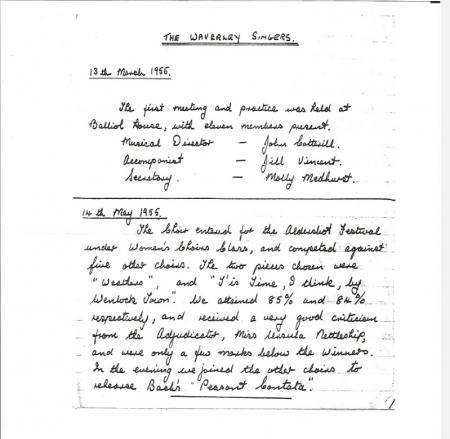 THE WAVERLEY SINGERS.
13th March 1955.
The first meeting and practice was held at
Balliol House, with eleven members present.
Musical Director — John Cotterill.
Accompanist — Jill Vincent.
Secretary. — Molly Medhurst.
14th May 1955.
The Choir entered for the Aldershot Festival
under Women's Choirs Class, and competed against
five other choirs. The two pieces chosen were
"Weathers", and "T'is Time, I think, by
Wenlock Town". We attained 85% and 84%
respectively, and received a very good criticism
from the Adjudicator, Miss Ursula Nettleship,
and were only a few marks below the Winners.
In the evening we joined the other choirs to
rehearse Bach's "Peasant Cantata".